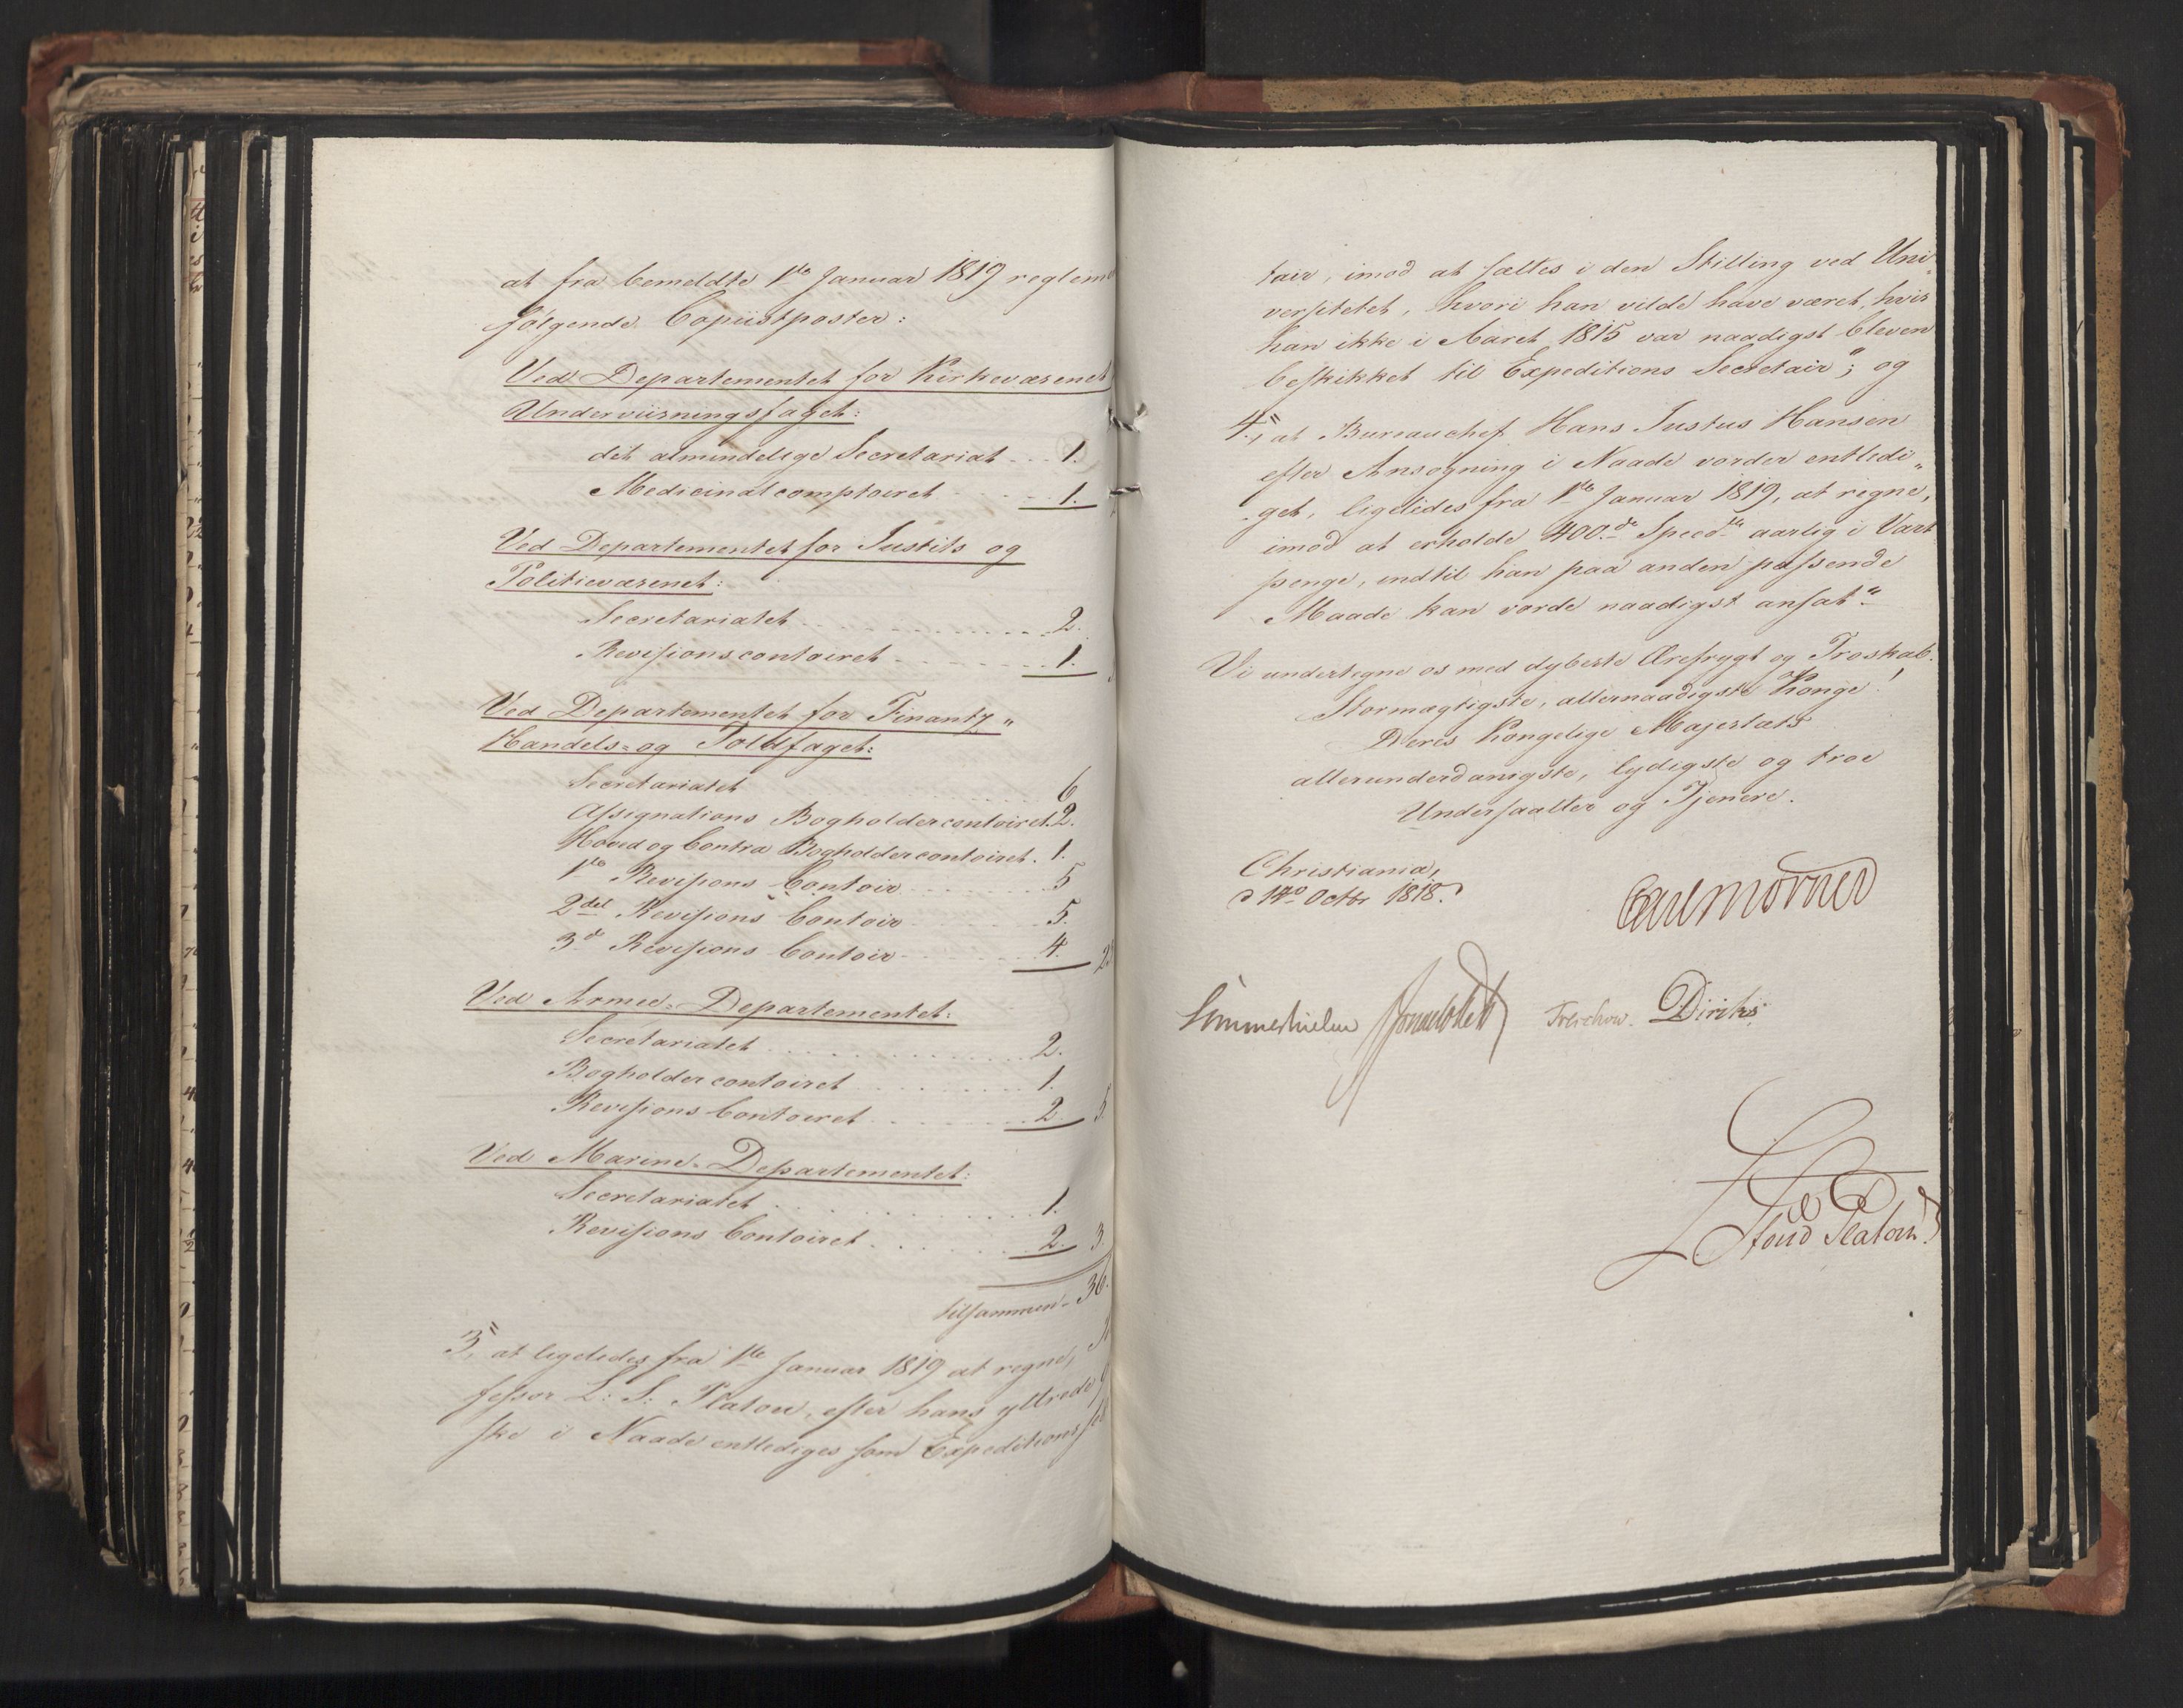 at fra bemeldte 1ste Januar 1819 reglem
følgende Copiistposter:
Ved Departementet for Kirkevæsenet
Underviisningsfaget:
det almindelige Secretariat 1.
Medicinalcomptoiret 1.
Ved Departementet for Justits og
Politievæsenet:
Secretariatet 2.
Revisionscontoiret 1.
Ved Departementet for Finantz-
Handels- og Toldfaget:
Secretariatet 6
Assignations Bogholdercontoiret 2.
Hoved og Contra Bogholdercontoiret. 1.
1ste Revisions Contoir 5
2det Revisions Contoir 5.
3de Revisions Contoir 4. 23
Ved Armee-Departementet:
Secretariatet 2.
Bogholdercontoiret 1.
Revisions Contoiret 2. 5.
Ved Marine-Departementet:
Secretariatet 1.
Revisions Contoiret 2. 3.
tilsammen 36.
3, at ligeledes fra 1ste Januar 1819 at regne,
fessor L: S: Platou, efter hans yttrede
ske i Naade entlediges som Expeditions
tair, imod at sættes i den Stilling ved Uni-
versitetet, hvori han vilde have været, hvis
han ikke i Aaret 1815 var naadigst bleven
beskikket til Expeditions Secretair; og
4, at Bureauchef Hans Justus Hansen
efter Ansøgning i Naade vorder entledi-
get, ligeledes fra 1ste Januar 1819, at regne,
imod at erholde 400de Specd aarlig i Vart
penge, indtil han paa anden passende
Maade kan vorde naadigst ansat."
Vi undertegne os med dybeste Ærefrygt og Troskab.
Stormægtigste, allernaadigste Konge!
Deres Kongelige Majestæts
allerunderdanigste, lydigste og troe
Undersaatter og Tjenere.
Christiania,
d 14de Octbr 1818.
Carl Mörner
Sommerhielm Treschow. Diriks
Stoud Platou